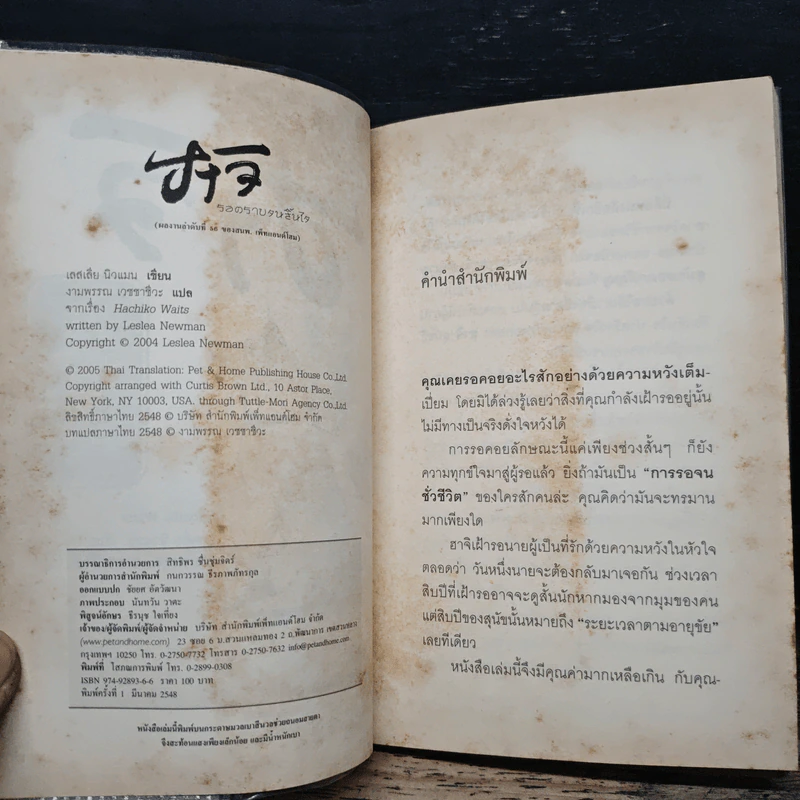 ฮาจิ
รอตราบวันสิ้นใจ
(ผลงานลำดับที่ ๖๙ ของสนพ. เพ็ทแอนด์โฮม)
เลสเลีย นิวแมน เขียน
งามพรรณ เวชชาชีวะ แปล
จากเรื่อง Hachiko Waits
written by Leslea Newman
Copyright © 2004 Leslea Newman
© 2005 Thai Translation: Pet & Home Publishing House Co.,Ltd.
Copyright arranged with Curtis Brown Ltd., 10 Astor Place,
New York, NY 10003, USA, through Tuttle-Mori Agency Co.,Ltd.
ลิขสิทธิ์ภาษาไทย 2548 © บริษัท สำนักพิมพ์เพ็ทแอนด์โฮม จำกัด
บทแปลภาษาไทย 2548 © งามพรรณ เวชชาชีวะ
บรรณาธิการอำนวยการ สิทธิพร ชื่นชุ่มจิตร์
ผู้อำนวยการสำนักพิมพ์ กนกวรรณ ธีรภาพภัทรกุล
ออกแบบปก ชัยยศ อัตวัฒนา
ภาพประกอบ นันทวัน วาตะ
พิสูจน์อักษร ธีรนุช ใจเที่ยง
เจ้าของ/ผู้จัดพิมพ์/ผู้จัดจำหน่าย บริษัท สำนักพิมพ์เพ็ทแอนด์โฮม จำกัด
(www.petandhome.com) 23 ซอย 6 ม.สวนแหลมทอง 2 ถ.พัฒนาการ เขตสวนหลวง
กรุงเทพฯ 10250 โทร. 0-2750-7732 โทรสาร 0-2750-7632 info@petandhome.com
พิมพ์ที่ โสภณการพิมพ์ โทร. 0-2899-0308
ISBN 974-92893-6-6 ราคา 100 บาท
พิมพ์ครั้งที่ 1 มีนาคม 2548
หนังสือเล่มนี้พิมพ์บนกระดาษมวลเบาสีนวลช่วยถนอมสายตา
จึงสะท้อนแสงเพียงเล็กน้อย และมีน้ำหนักเบา
คำนำสำนักพิมพ์
คุณเคยรอคอยอะไรสักอย่างด้วยความหวังเต็ม-
เปี่ยม โดยมิได้ล่วงรู้เลยว่าสิ่งที่คุณกำลังเฝ้ารออยู่นั้น
ไม่มีทางเป็นจริงดั่งใจหวังได้
การรอคอยลักษณะนี้แค่เพียงช่วงสั้นๆ ก็ยัง
ความทุกข์ใจมาสู่ผู้รอแล้ว ยิ่งถ้ามันเป็น “การรอจน
ชั่วชีวิต” ของใครสักคนล่ะ คุณคิดว่ามันจะทรมาน
มากเพียงใด
ฮาจิเฝ้ารอนายผู้เป็นที่รักด้วยความหวังในหัวใจ
ตลอดว่า วันหนึ่งนายจะต้องกลับมาเจอกัน ช่วงเวลา
สิบปีที่เฝ้ารออาจจะดูสั้นนักหากมองจากมุมของคน
แต่สิบปีของสุนัขนั้นหมายถึง “ระยะเวลาตามอายุขัย”
เลยทีเดียว
หนังสือเล่มนี้จึงมีคุณค่ามากเหลือเกิน กับคุณ-